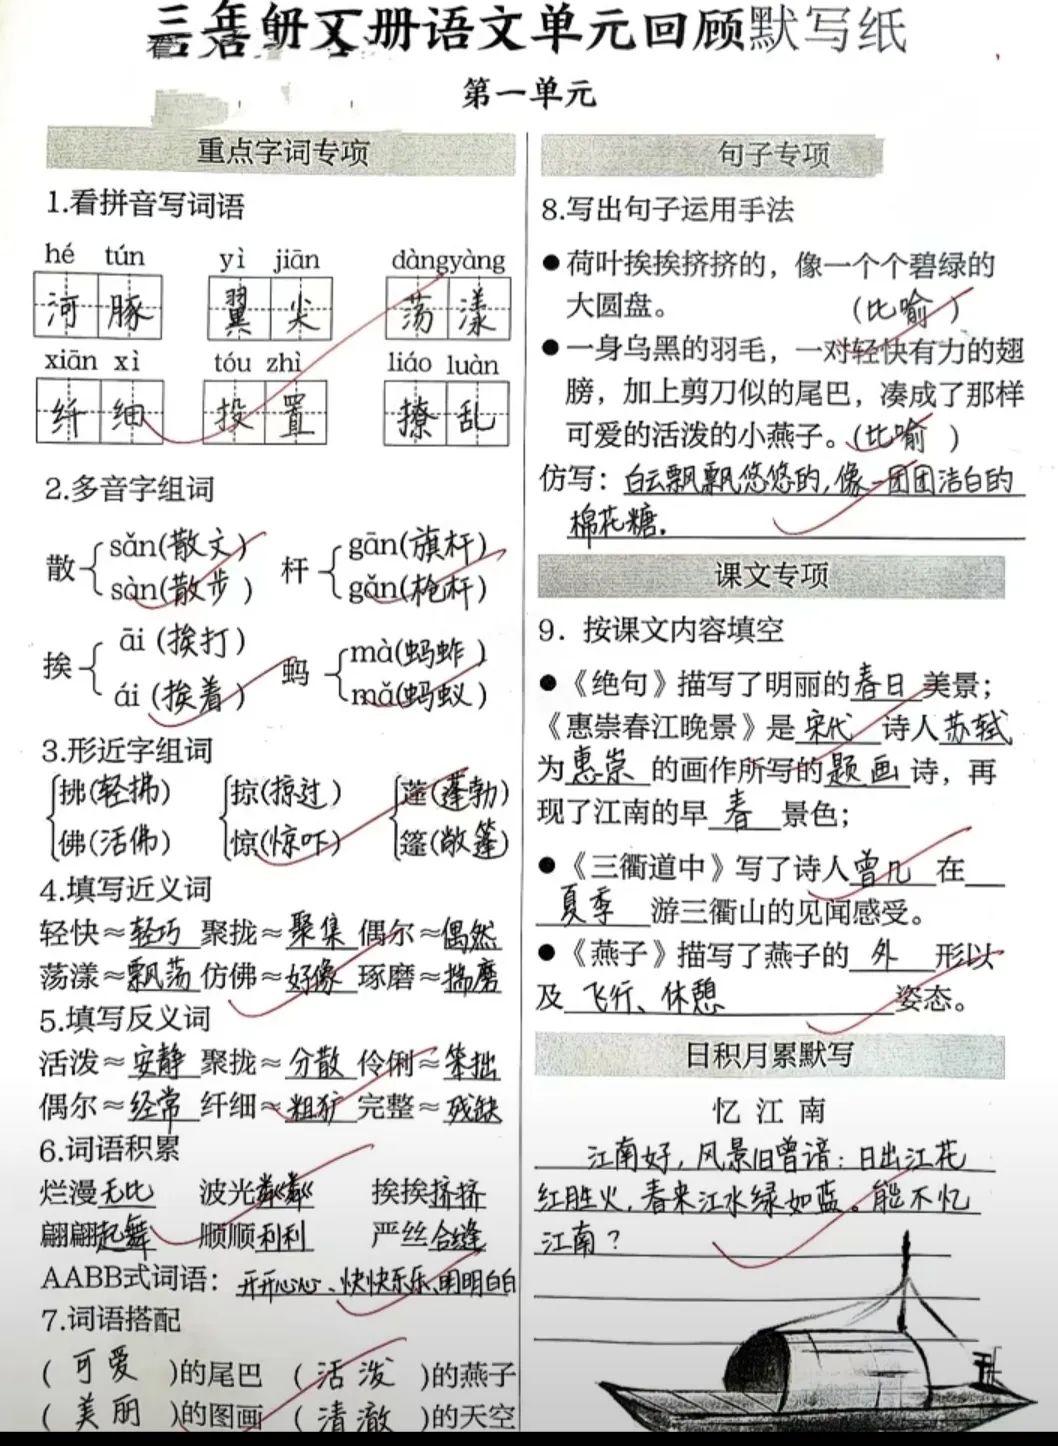 三年级下册语文单元回顾默写纸
第一单元
重点字词专项
1.看拼音写词语
hé tún yì jiān dàngyàng
河豚 翼尖 荡漾
xiān xì tóu zhì liáo luàn
纤细 投置 撩乱
2.多音字组词
散 sǎn(散文) 杆 gān(旗杆)
sàn(散步) gǎn(枪杆)
挨 āi(挨打) 蚂 mà(蚂蚱)
ái(挨着) mǎ(蚂蚁)
3.形近字组词
拂(轻拂) 掠(掠过) 蓬(蓬勃)
佛(活佛) 惊(惊吓) 篷(敞篷)
4.填写近义词
轻快≈轻巧 聚拢≈聚集 偶尔≈偶然
荡漾≈飘荡 仿佛≈好像 琢磨≈揣磨
5.填写反义词
活泼≈安静 聚拢≈分散 伶俐≈笨拙
偶尔≈经常 纤细≈粗犷 完整≈残缺
6.词语积累
烂漫无比 波光粼粼 挨挨挤挤
翩翩起舞 顺顺利利 严丝合缝
AABB式词语：开开心心、快快乐乐、明明白白
7.词语搭配
(可爱)的尾巴 (活泼)的燕子
(美丽)的图画 (清澈)的天空
句子专项
8.写出句子运用手法
●荷叶挨挨挤挤的，像一个个碧绿的
大圆盘。 (比喻)
●一身乌黑的羽毛，一对轻快有力的翅
膀，加上剪刀似的尾巴，凑成了那样
可爱的活泼的小燕子。(比喻)
仿写：白云飘飘悠悠的,像一团团洁白的
棉花糖.
课文专项
9．按课文内容填空
●《绝句》描写了明丽的春日美景；
《惠崇春江晚景》是宋代诗人苏轼
为惠崇的画作所写的题画诗，再
现了江南的早春景色；
●《三衢道中》写了诗人曾几在
夏季游三衢山的见闻感受。
●《燕子》描写了燕子的外形以
及飞行、休憩姿态。
日积月累默写
忆江南
江南好,风景旧曾谙:日出江花
红胜火,春来江水绿如蓝。能不忆
江南?